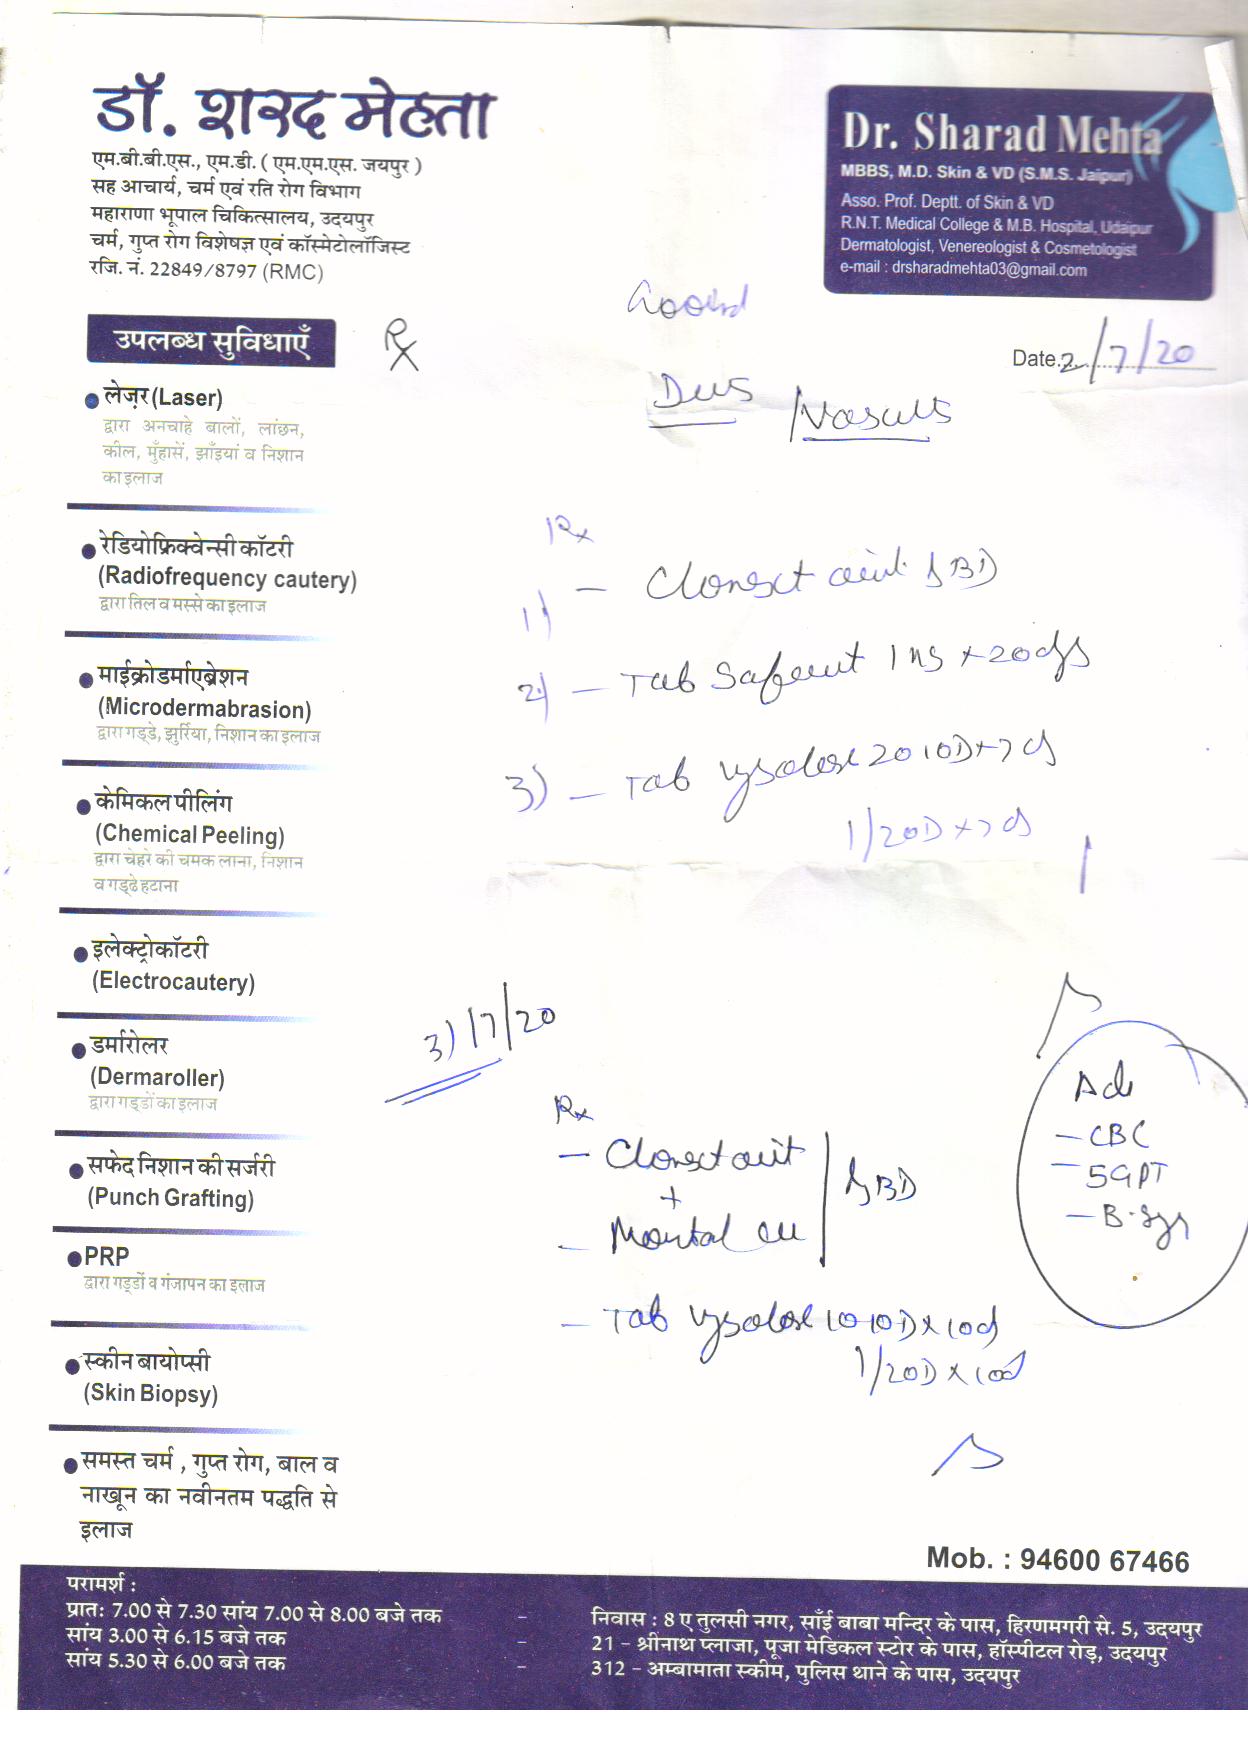 डॉ. शरद मेहता
एम.बी.बी.एस., एम.डी. ( एम.एम.एस. जयपुर )
सह आचार्य, चर्म एवं रति रोग विभाग
महाराणा भूपाल चिकित्सालय, उदयपुर
चर्म, गुप्त रोग विशेषज्ञ एवं कॉस्मेटोलॉजिस्ट
रजि. नं. 22849/8797 (RMC)
Dr. Sharad Mehta
MBBS, M.D. Skin & VD (S.M.S. Jaipur)
Asso. Prof. Deptt. of Skin & VD
R.N.T. Medical College & M.B. Hospital, Udaipur
Dermatologist, Venereologist & Cosmetologist
e-mail : drsharadmehta03@gmail.com
Rx
Date. 2/7/20
उपलब्ध सुविधाएँ
लेज़र (Laser)
द्वारा अनचाहे बालों, लांछन,
कील, मुँहासें, झाँइयां व निशान
का इलाज
रेडियोफ्रिक्वेन्सी कॉटरी
(Radiofrequency cautery)
द्वारा तिल व मस्से का इलाज
माईक्रोडर्माएब्रेशन
(Microdermabrasion)
द्वारा गड्डे, झुर्रिया, निशान का इलाज
केमिकल पीलिंग
(Chemical Peeling)
द्वारा चेहरे की चमक लाना, निशान
व गड्ढे हटाना
इलेक्ट्रोकॉटरी
(Electrocautery)
डर्मारोलर
(Dermaroller)
द्वारा गड्डों का इलाज
सफेद निशान की सर्जरी
(Punch Grafting)
PRP
द्वारा गड्डों व गंजापन का इलाज
स्कीन बायोप्सी
(Skin Biopsy)
समस्त चर्म , गुप्त रोग, बाल व
नाखून का नवीनतम पद्धति से
इलाज
Rx
1) -
2) - Tab 1 × 20
3) - Tab 20 1OD × 7d
1/2OD × 7d
31/7/20
Rx
+
BD
- Tab 10 1OD × 10d
1/2OD × 10d
- CBC
- SGPT
Mob. : 94600 67466
परामर्श :
प्रातः 7.00 से 7.30 सांय 7.00 से 8.00 बजे तक - निवास : 8 ए तुलसी नगर, साँई बाबा मन्दिर के पास, हिरणमगरी से. 5, उदयपुर
सांय 3.00 से 6.15 बजे तक - 21 - श्रीनाथ प्लाजा, पूजा मेडिकल स्टोर के पास, हॉस्पीटल रोड़, उदयपुर
सांय 5.30 से 6.00 बजे तक - 312 - अम्बामाता स्कीम, पुलिस थाने के पास, उदयपुर